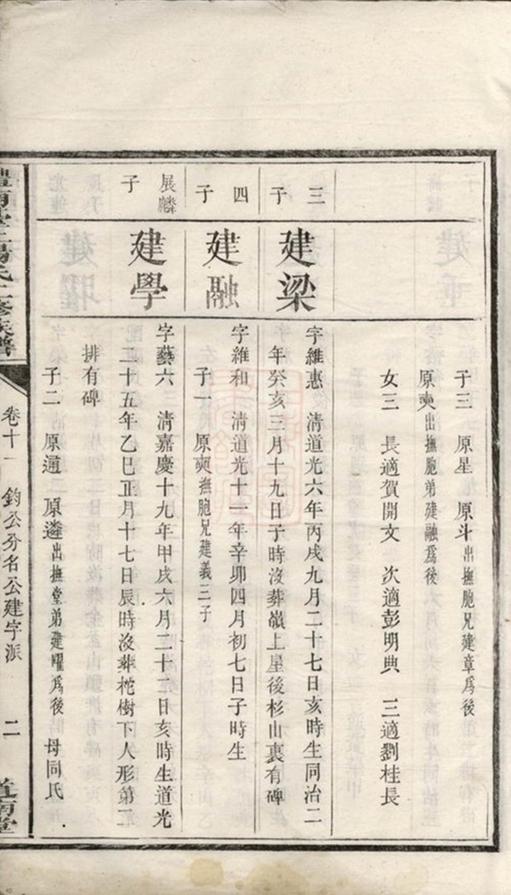 子三　原星　原斗出撫胞兄建章爲後
原奭出撫胞弟建融爲後
女三　長適賀開文　次適彭明典　三適劉桂長
三子
建梁
字維惠　清道光六年丙戌九月二十七日亥時生同治二
年癸亥三月十九日子時沒葬嶺上星後杉山裏有碑
四子
建融
字維和　清道光十一年辛卯四月初七日子時生
子一　原奭撫胞兄建義三子
展麟子
建學
字藝六　清嘉慶十九年甲戌六月二十二日亥時生道光
二十五年乙巳正月十七日辰時沒葬柁樹下人形第二
排有碑
子二　原通　原遴出撫堂弟建曜爲後　母同氏
卷十一　鈞公分名公建字派　二　道南堂